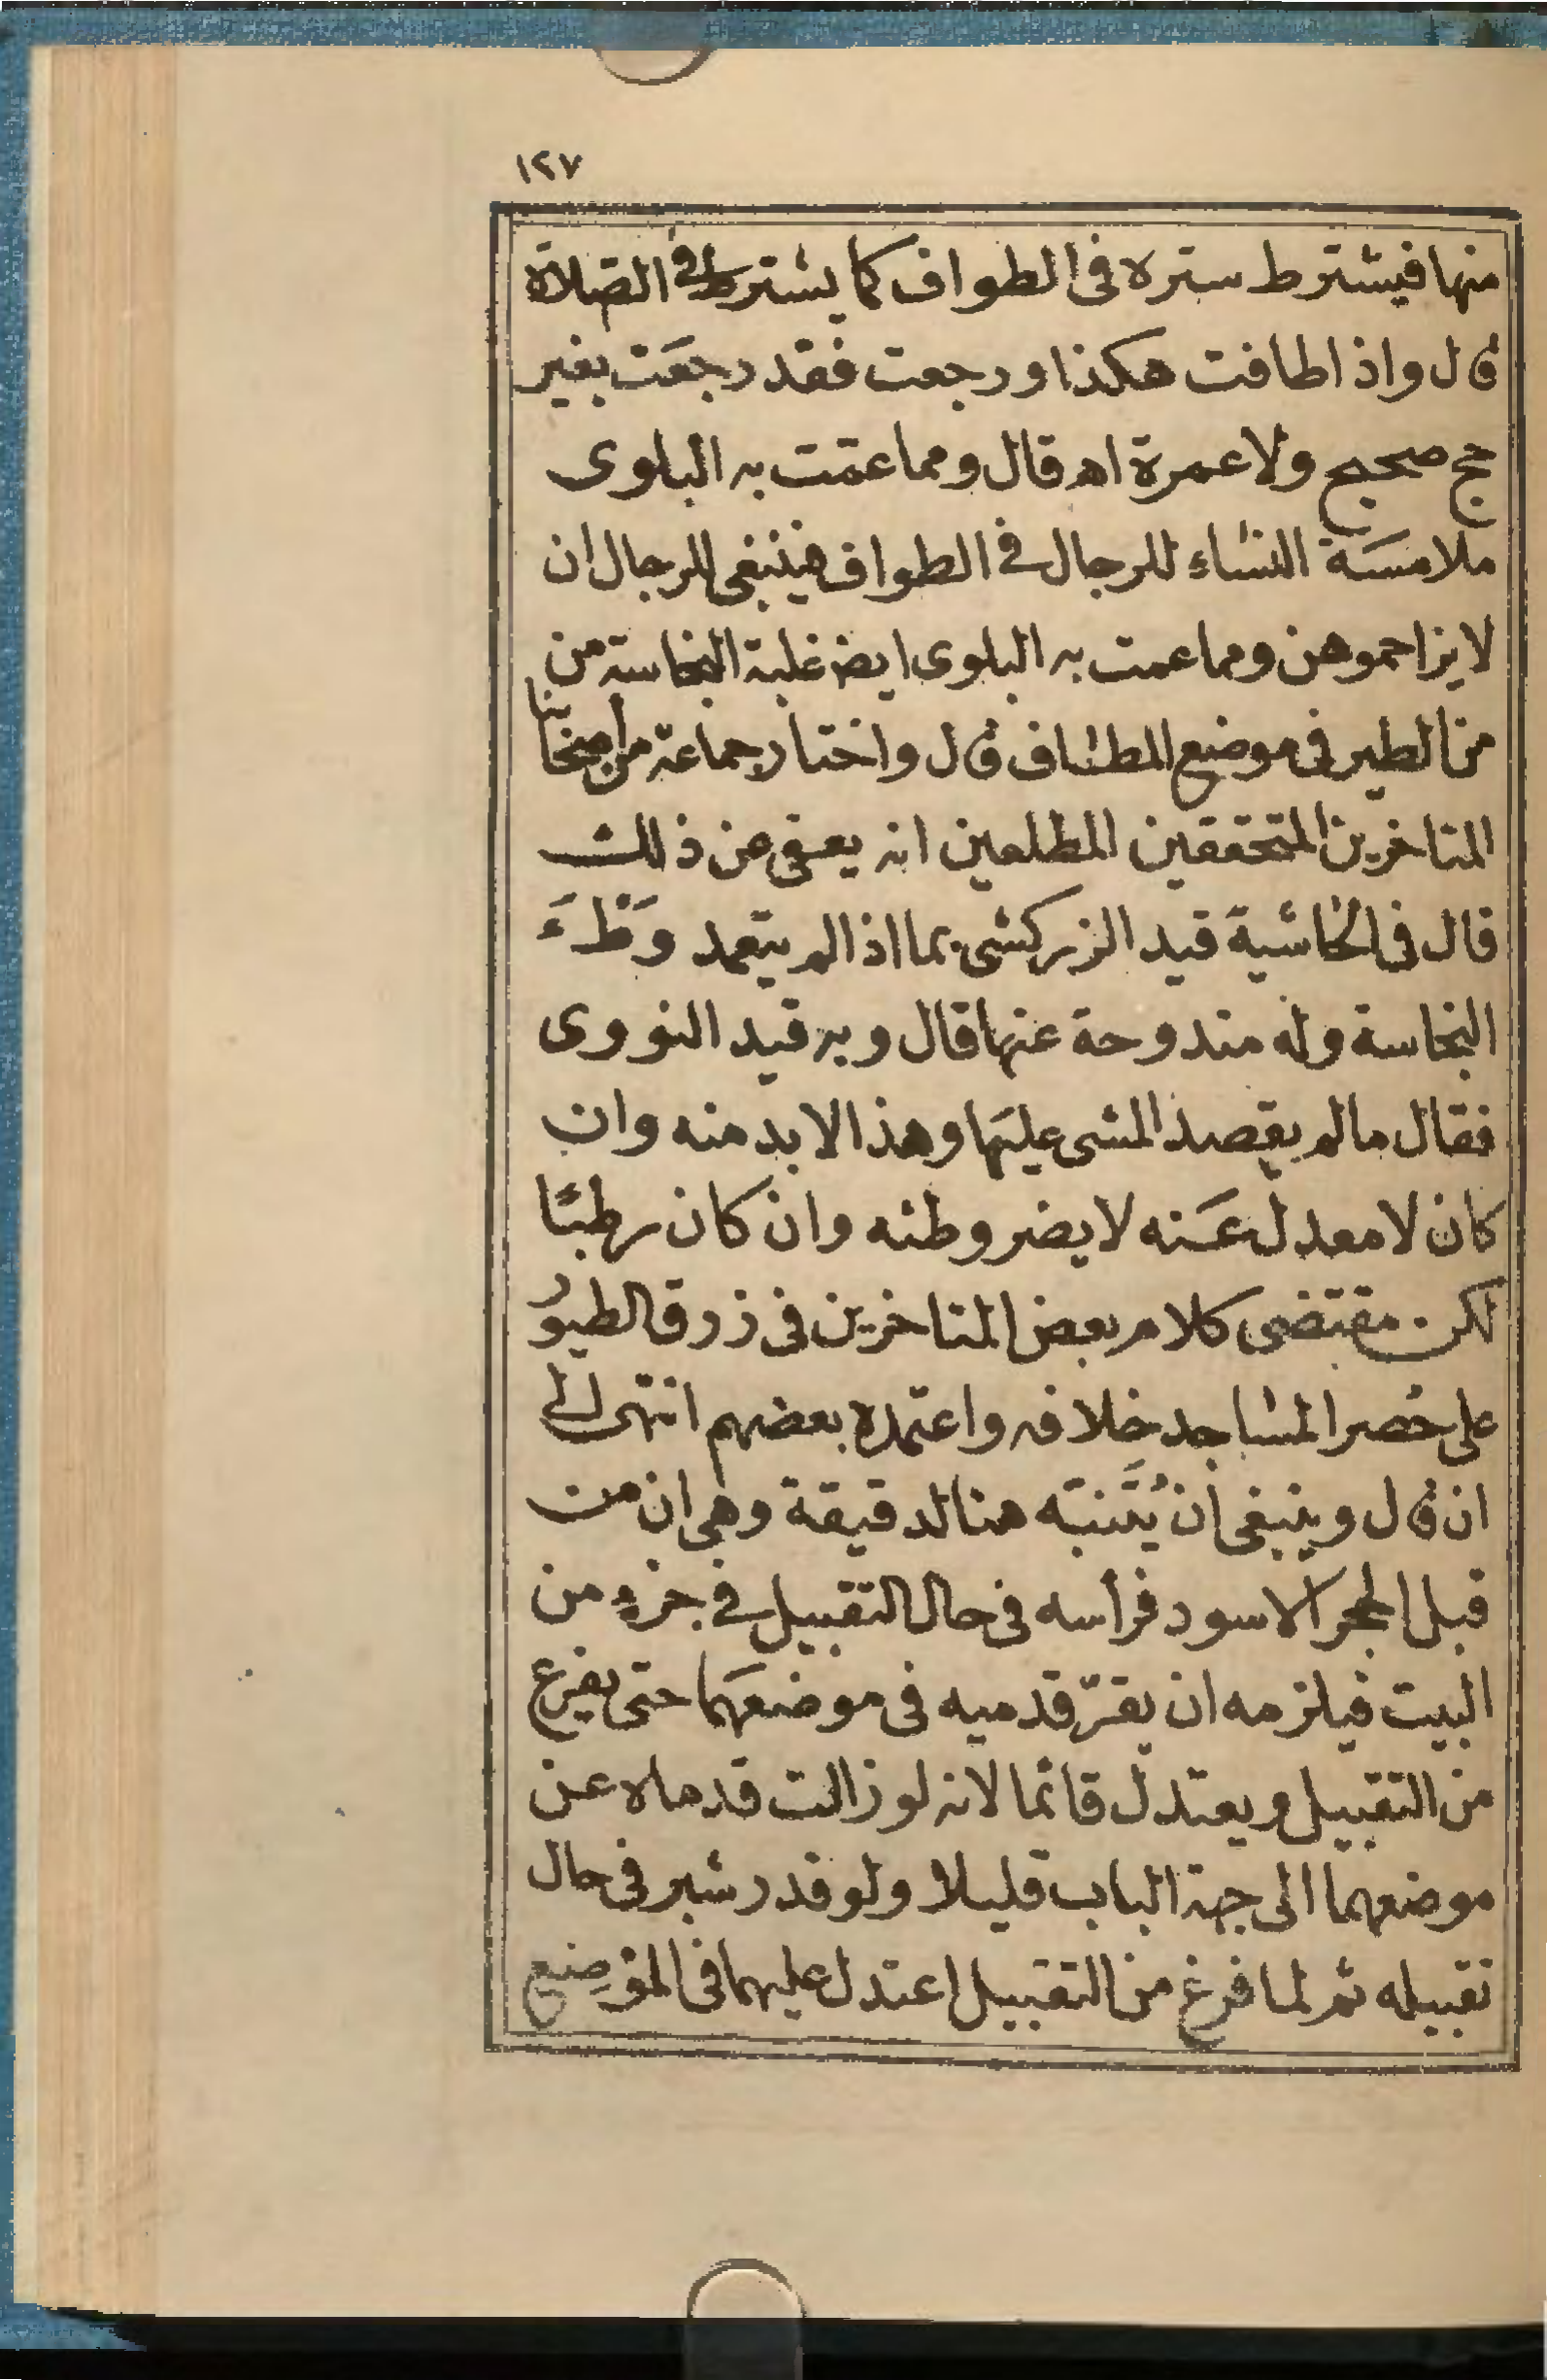 ١٢٧
منها فيشترط ستره فى الطواف كما يشترط فى الصّلاة
قال واذا طافت هكذا ورجعت فقد رجعَت بغير
حج صحيح ولا عمرة اھ قال ومما عمّت به البلوى
ملامسَة النساء للرجال فى الطواف فينبغى للرجال ان
لا يزاحموهن ومما عمت به البلوى ايضا غلبة النجاسة من
من الطير فى موضع المطاف قال واختار جماعة من أصحابنا
المتاخرين المتحققين المطلعين انه يعفى عن ذلك
قال فى الحاشية قيد الزركشى بما اذا لم يتعمد وَطْءَ
النجاسة وله مندوحة عنها قال وبه قيد النووى
فقال ما لم يقصد المشى عليَها وهذا لا بد منه وان
كان لا معدل عَنه لا يضر وطئه وان كان رطبًا
لكن مقتضى كلام بعض المتاخرين فى زرق الطيوُر
على حُصر المساجد خلافه واعتمده بعضهم انتهى الى
ان قال وينبغى أن يُتَنبّه هنا لدقيقة وهى ان من
قبل الحجر الاسود فرأسه فى حال التقبيل فى جزء من
البيت فيلزمه ان يقرّ قدميه فى موضعَهما حتى يفرغ
من التقبيل ويعتدل قائما لانه لو زالت قدماه عن
موضعهما الى جهة الباب قليلا ولو قدر شبر فى حال
تقبيله ثم لما فرغ من التقبيل اعتدل عليهما فى الموَضِع